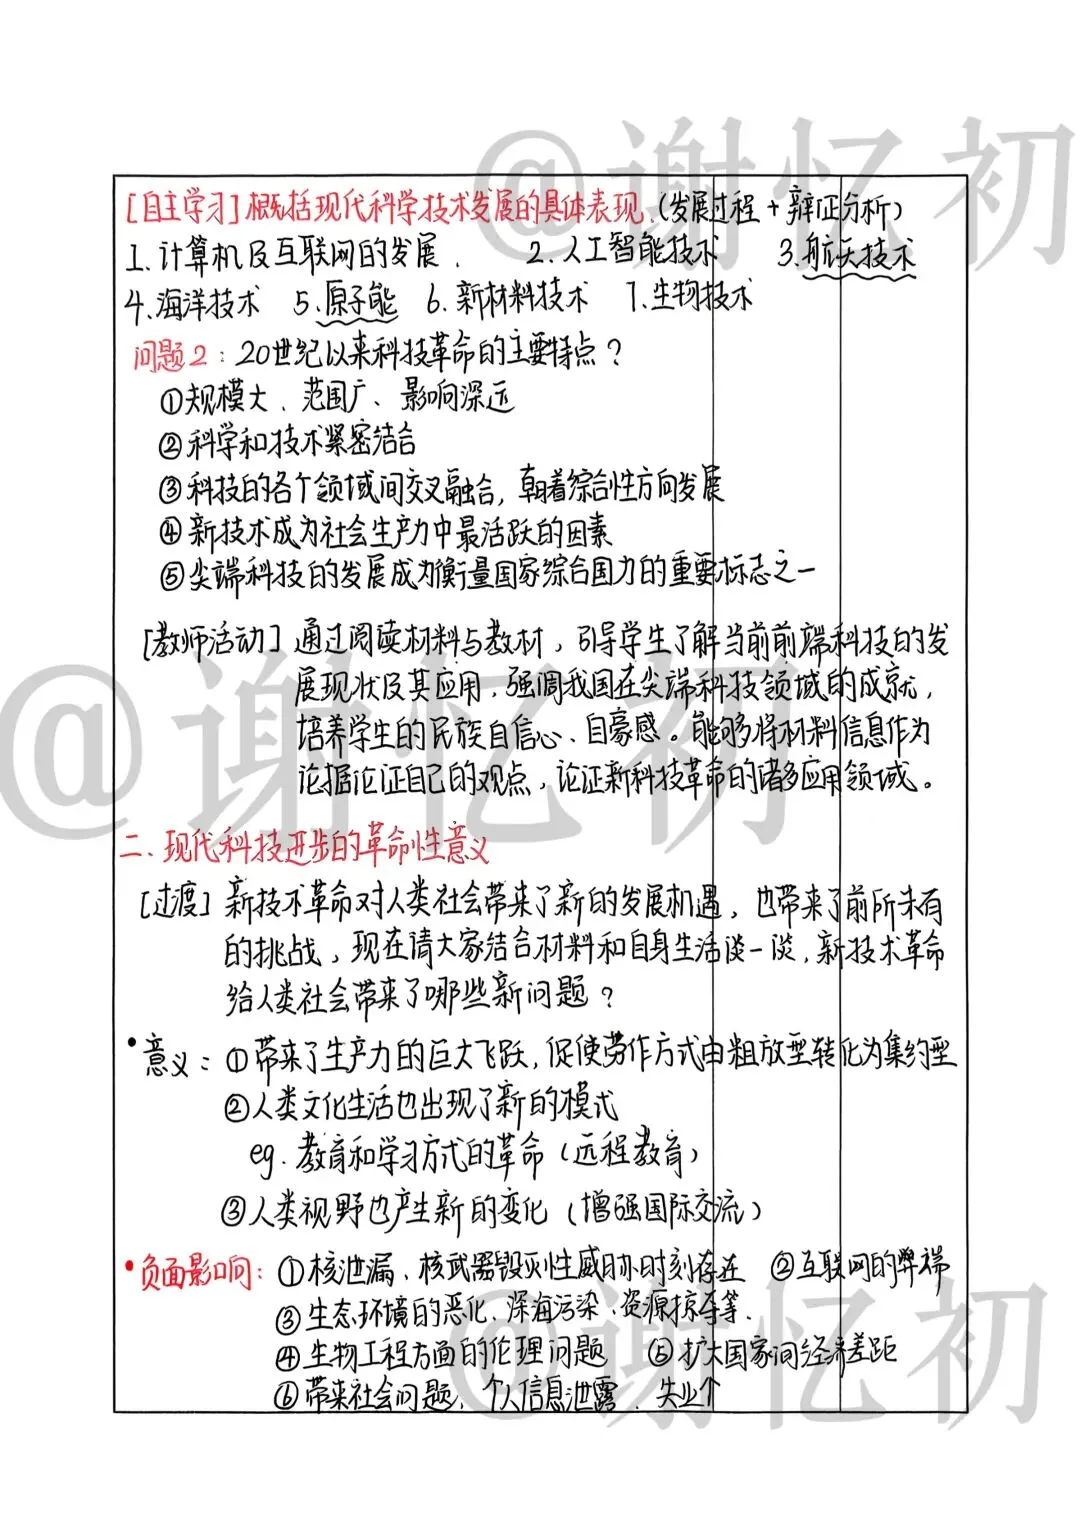 @谢忆初
[自主学习] 概括现代科学技术发展的具体表现.(发展过程+辩证分析)
1.计算机及互联网的发展. 2.人工智能技术 3.航天技术
4.海洋技术 5.原子能 6.新材料技术 7.生物技术
问题2:20世纪以来科技革命的主要特点?
①规模大、范围广、影响深远
②科学和技术紧密结合
③科技的各个领域间交叉融合,朝着综合性方向发展
④新技术成为社会生产力中最活跃的因素
⑤尖端科技的发展成为衡量国家综合国力的重要标志之一
[教师活动] 通过阅读材料与教材,引导学生了解当前前端科技的发
展现状及其应用,强调我国在尖端科技领域的成就,
培养学生的民族自信心、自豪感。能够将材料信息作为
论据论证自己的观点,论证新科技革命的诸多应用领域。
@谢忆初
二、现代科技进步的革命性意义
[过渡] 新技术革命对人类社会带来了新的发展机遇,也带来了前所未有
的挑战,现在请大家结合材料和自身生活谈一谈,新技术革命
给人类社会带来了哪些新问题?
•意义:①带来了生产力的巨大飞跃,促使劳作方式由粗放型转化为集约型
②人类文化生活也出现了新的模式
eg.教育和学习方式的革命(远程教育)
③人类视野也产生新的变化(增强国际交流)
•负面影响:①核泄漏、核武器毁灭性威胁时刻存在 ②互联网的弊端
③生态环境的恶化、深海污染、资源掠夺等.
④生物工程方面的伦理问题 ⑤扩大国家间经济差距
⑥带来社会问题、个人信息泄露、失业个
@谢忆初